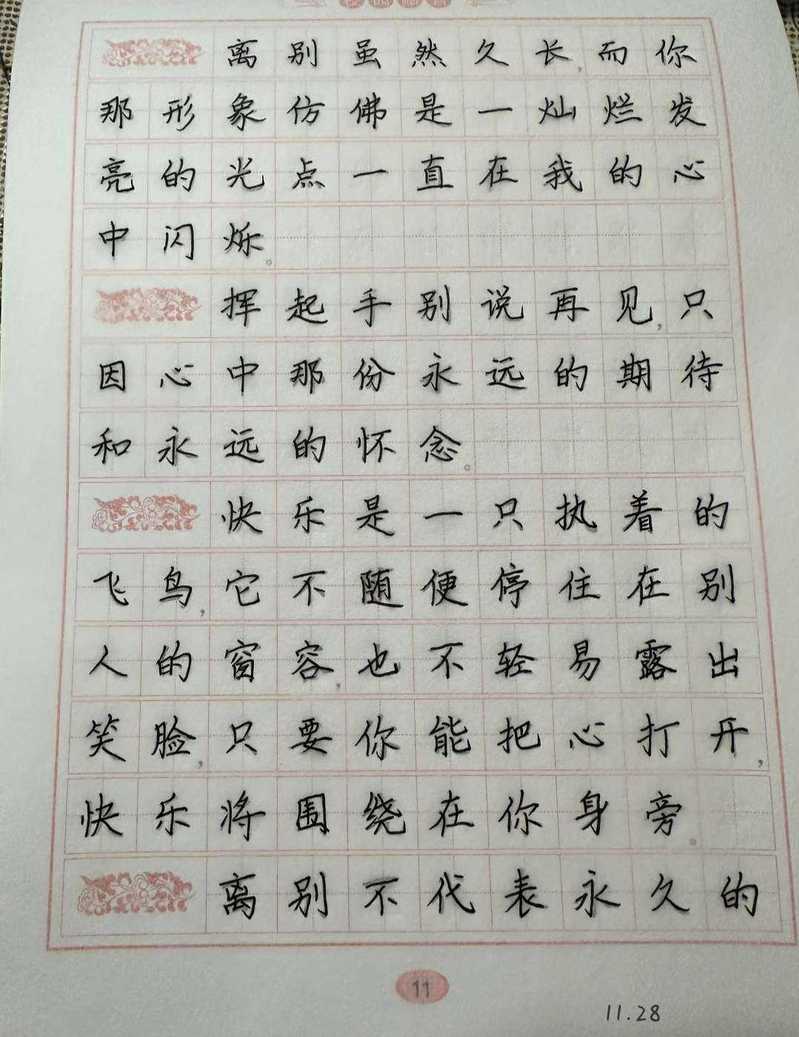 离别虽然久长,而你
那形象仿佛是一灿烂发
亮的光点一直在我的心
中闪烁。
挥起手别说再见,只
因心中那份永远的期待
和永远的怀念。
快乐是一只执着的
飞鸟,它不随便停住在别
人的窗容,也不轻易露出
笑脸,只要你能把心打开,
快乐将围绕在你身旁。
离别不代表永久的
11
11.28